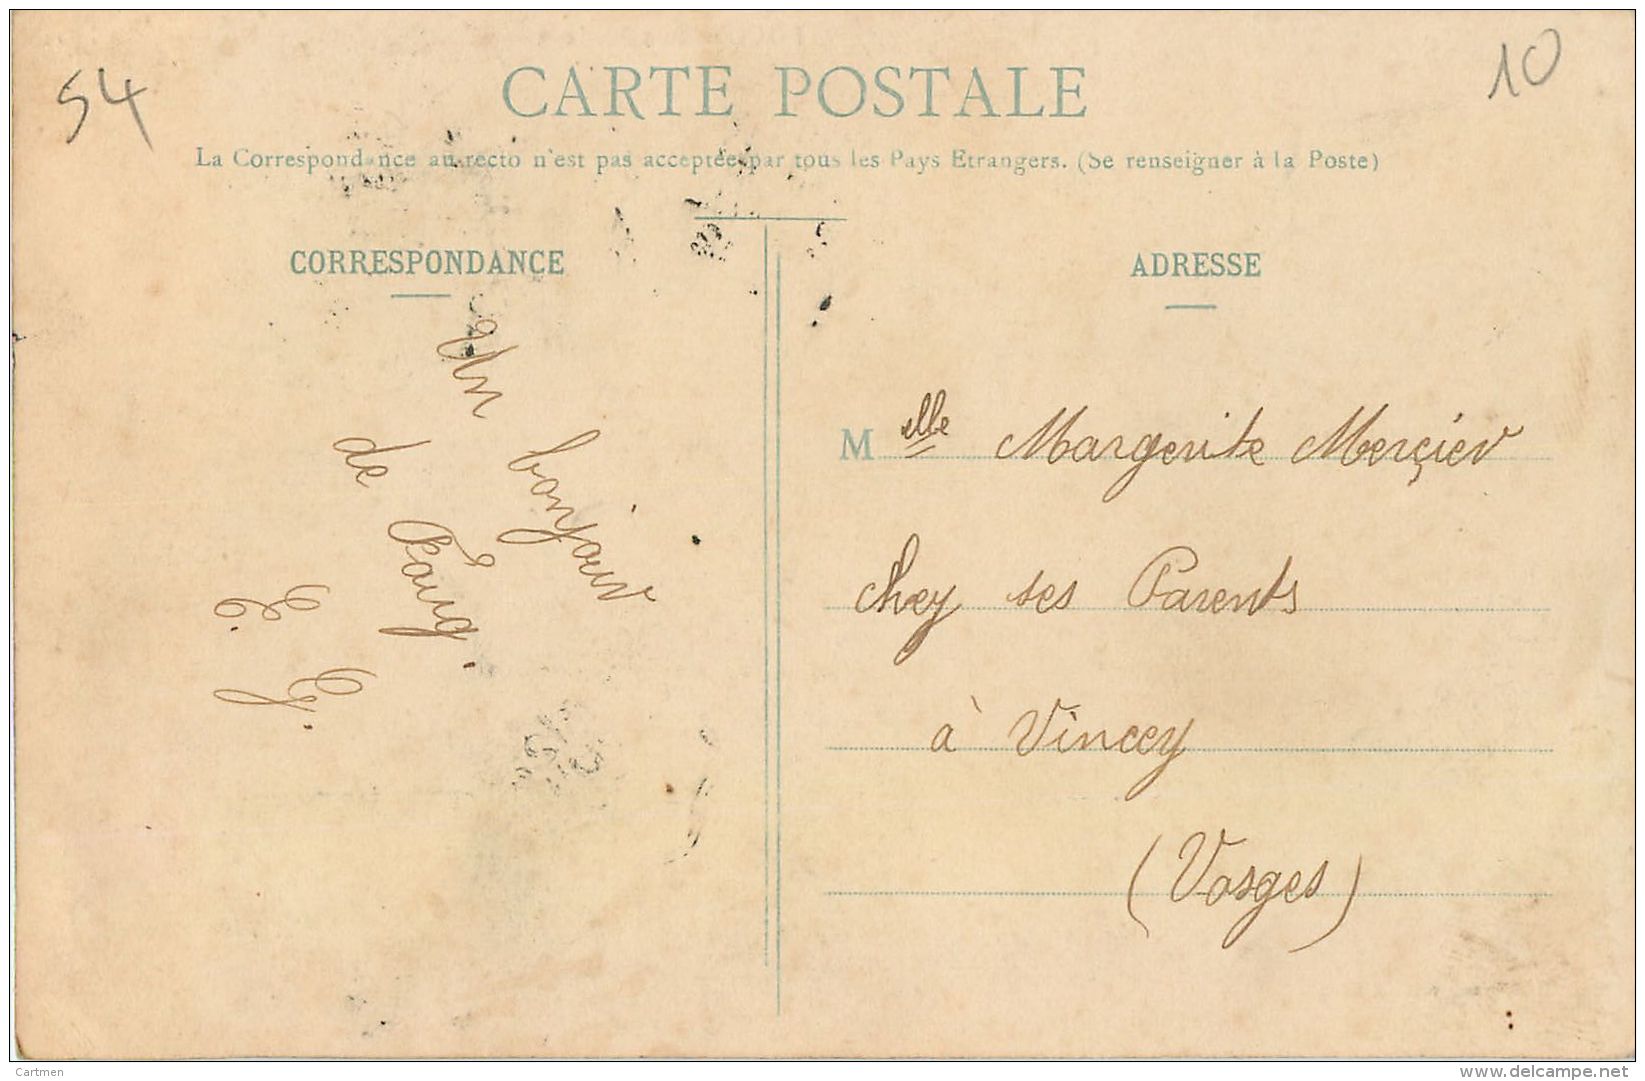 54
10
CARTE POSTALE
La Correspondance au recto n'est pas acceptée par tous les Pays Etrangers. (Se renseigner à la Poste)
CORRESPONDANCE
Un bonjour
de Foug.
E. G.
ADRESSE
Melle Marguerite Merçier
chez ses Parents
à Vincey
(Vosges)
Cartmen
www.delcampe.net